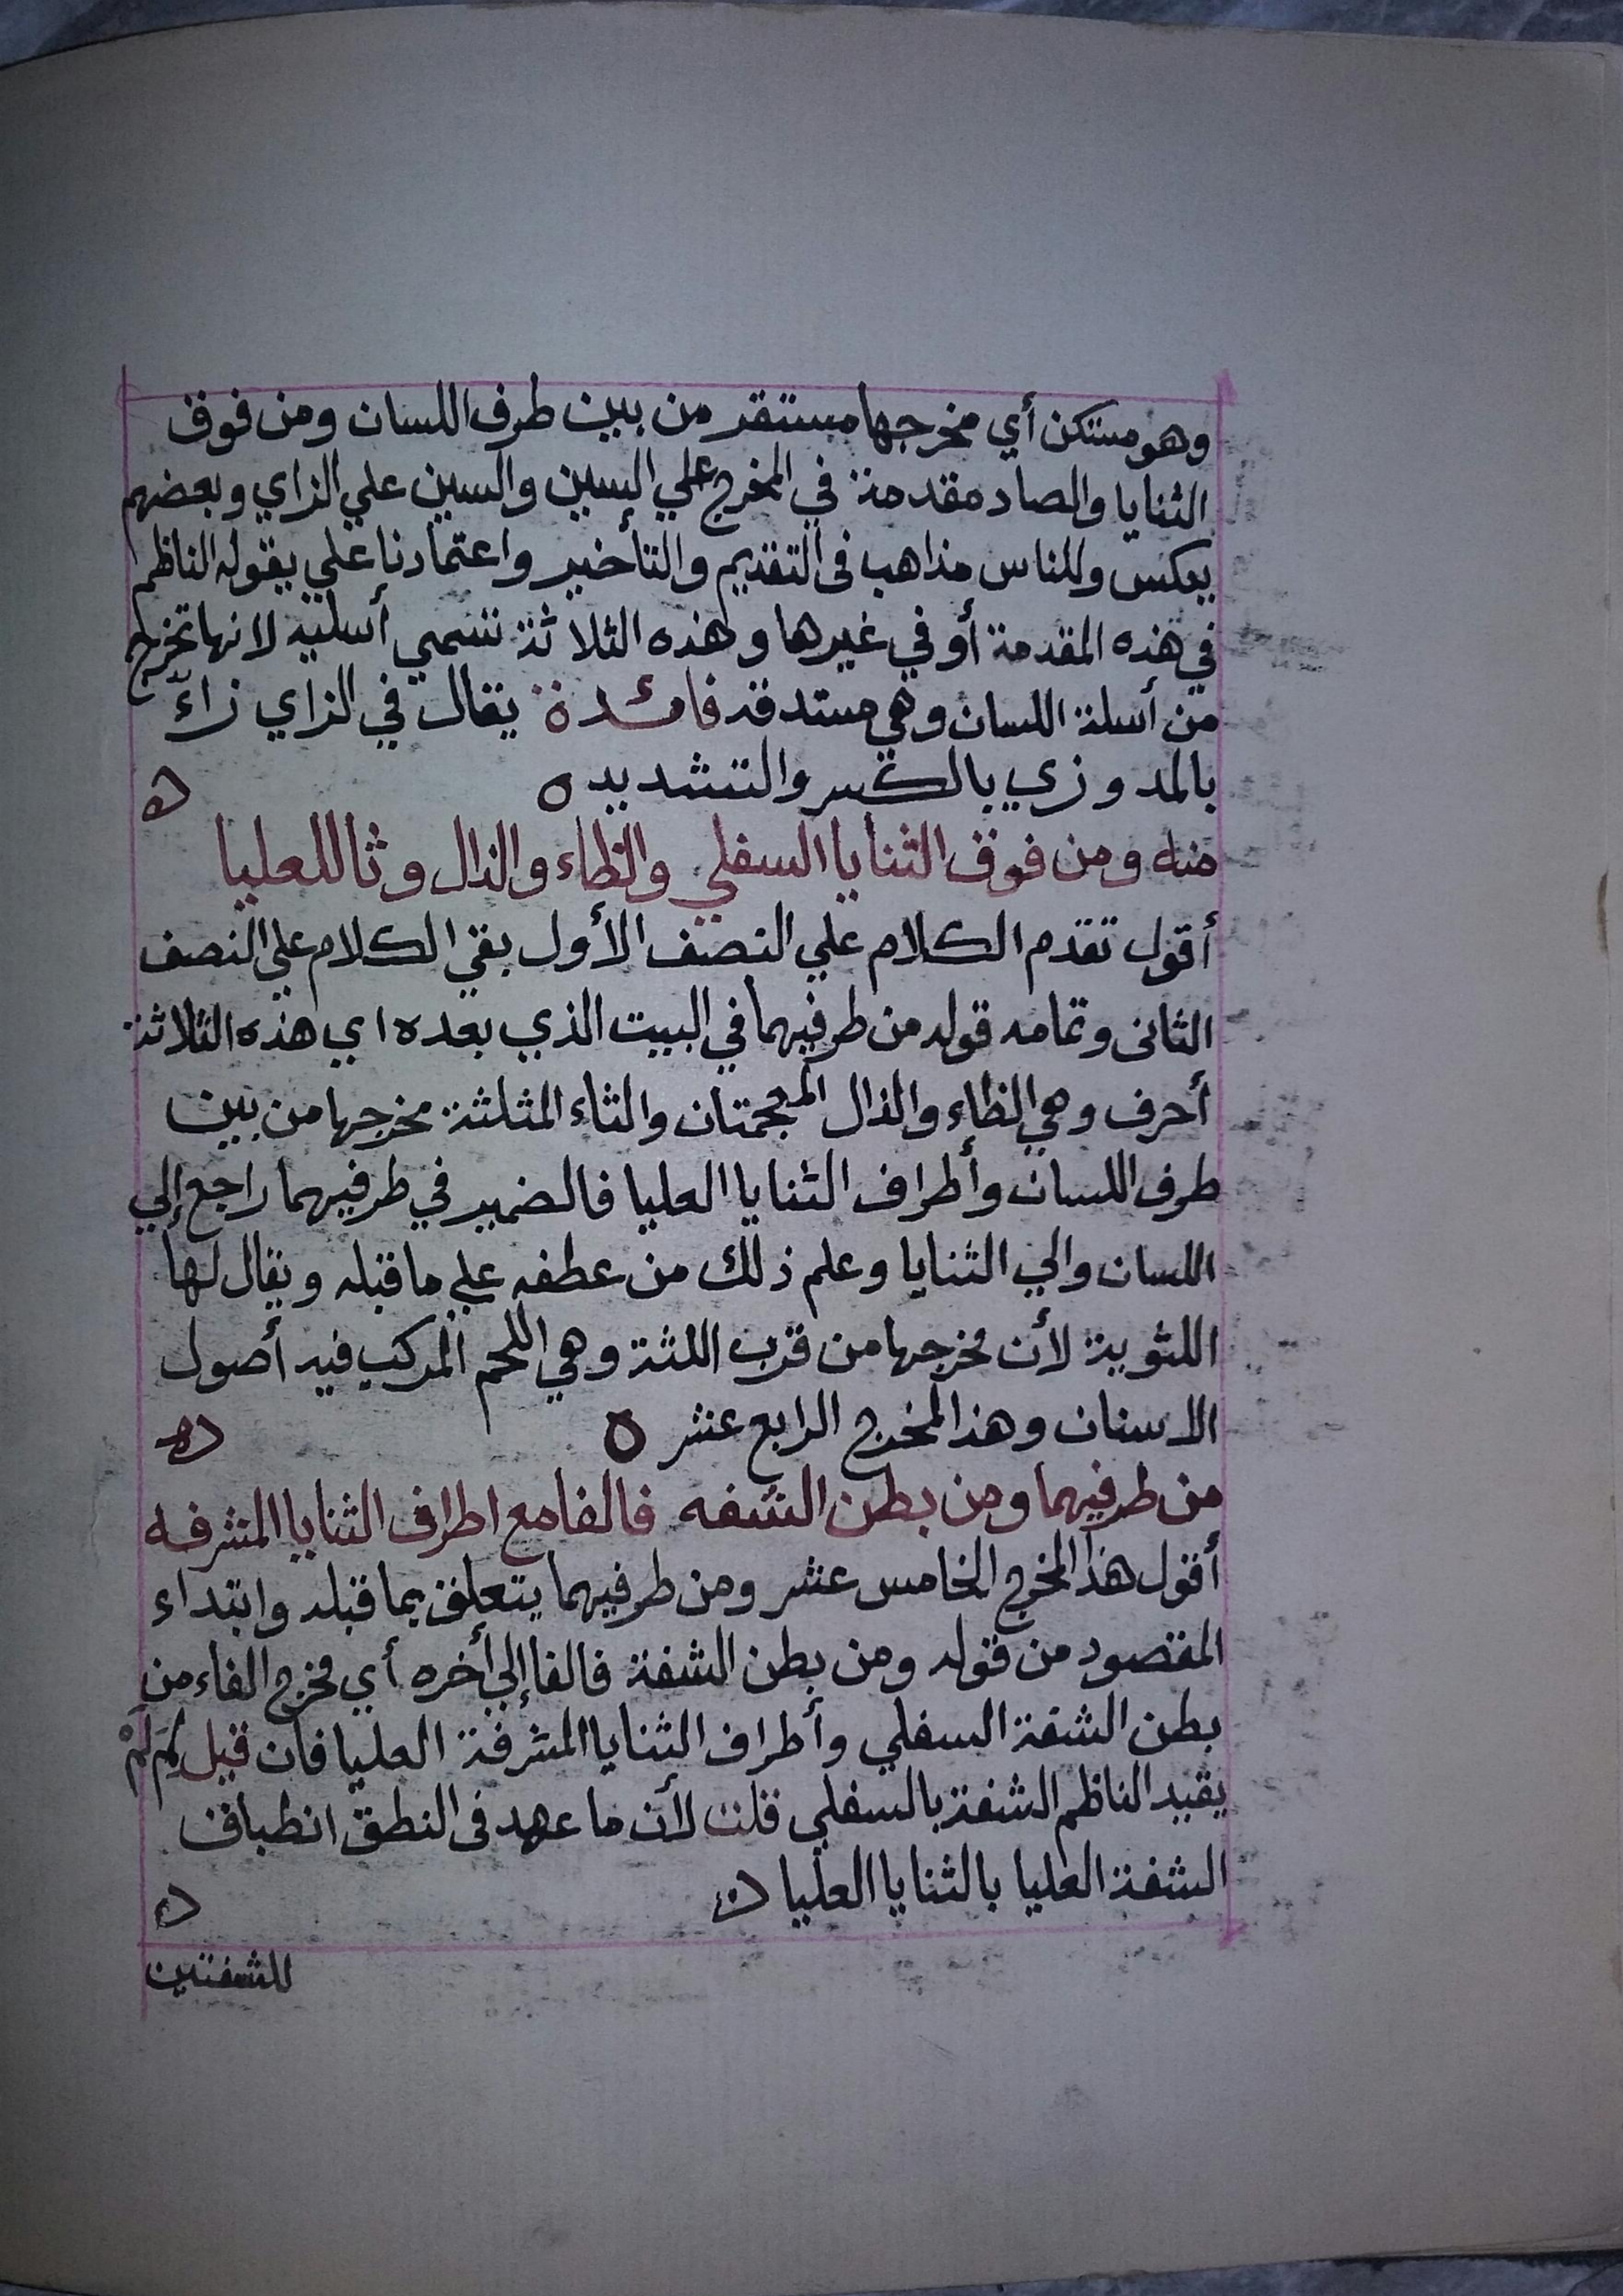 وهو مستكن أي مخرجها مستقر من بين طرف اللسان ومن فوق
الثنايا والصاد مقدمة في المخرج علي السين والسين علي الزاي وبعضهم
يعكس وللناس مذاهب في التقديم والتأخير واعتمادنا علي يقوله الناظم
في هذه المقدمة أو في غيرها وهذه الثلاثة تسمي أسليه لانها تخرج
من أسلة اللسان وهي مستدقه فائدة يقال في الزاي زاءٌ
بالمد وزي بالكسر والتشديد ه
منه ومن فوق الثنايا السفلي والظاء والذال وثا للعليا
أقول تقدم الكلام علي النصف الأول بقي الكلام علي النصف
الثاني وتمامه قوله من طرفيهما في البيت الذي بعده اي هذه الثلاثة
أحرف وهي الظاء والذال المعجمتان والثاء المثلثة مخرجها من بين
طرف اللسان وأطراف الثنايا العليا فالضمير في طرفيهما راجع إلي
اللسان والي الثنايا وعلم ذلك من عطفه علي ما قبله ويقال لها
اللثوية لأن مخرجها من قرب اللثة وهي اللحم المركب فيه أصول
الاسنان وهذا المخرج الرابع عشر ه
من طرفيهما ومن بطن الشفه فالفا مع اطراف الثنايا المشرفه
أقول هذا المخرج الخامس عشر ومن طرفيهما يتعلق بما قبله وابتداء
المقصود من قوله ومن بطن الشفة فالفا إلي أخره أي مخرج الفاء من
بطن الشفة السفلي وأطراف الثنايا المشرفة العليا فان قيل لِمَ لَمْ
يقيد الناظم الشفة بالسفلي قلت لأن ما عهد في النطق انطباق
الشفة العليا بالثنايا العليا
للشفتين